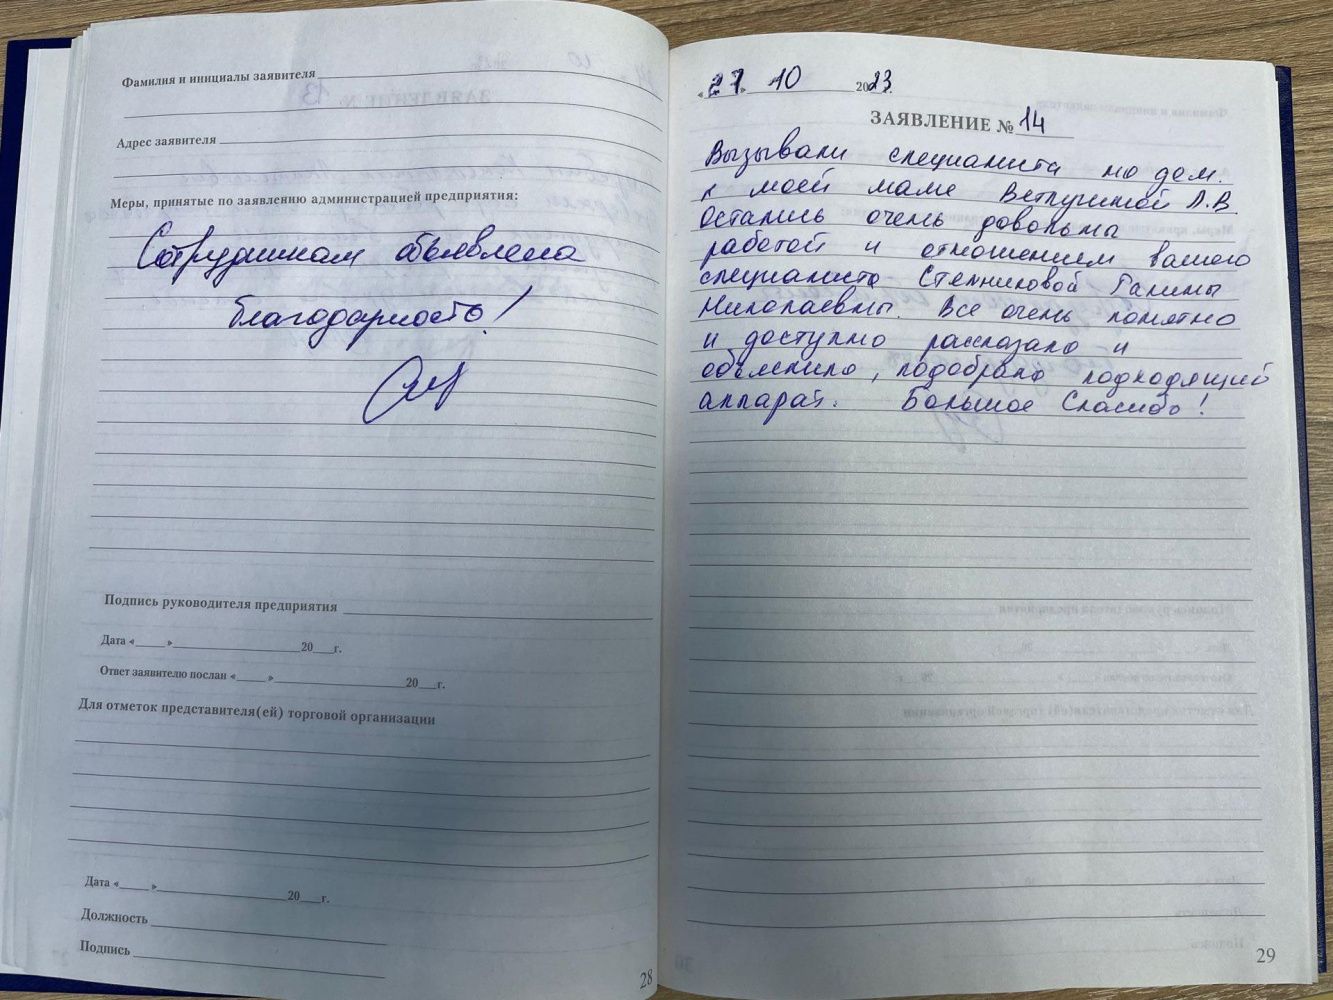 Фамилия и инициалы заявителя
Адрес заявителя
Меры, принятые по заявлению администрацией предприятия:
Сотрудникам объявлена
благодарность!
Подпись руководителя предприятия
Дата «____»____________20___г.
Ответ заявителю послан «____»____________20___г.
Для отметок представителя(ей) торговой организации
Дата «____»____________20___г.
Должность
Подпись
28
«27» 10 2023 г.
ЗАЯВЛЕНИЕ № 14
Вызывали специалиста на дом.
к моей маме Ветлугиной Л.В.
Остались очень довольны
работой и отношением вашего
специалиста Стенниковой Галины
Николаевны. Все очень понятно
и доступно рассказала и
объяснила, подобрала подходящий
аппарат. Большое Спасибо!
29